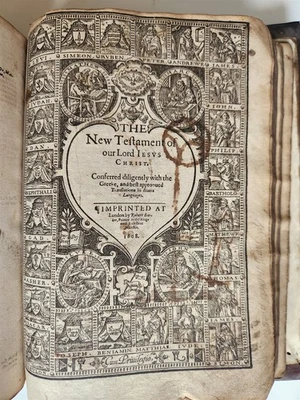 LEVI SIMEON RVBEN PETER ANDREWE IAMES
IVDAH
IOHN
DAN
PHILIP
NEPHTHALI
BARTHOLO
THE
New Testament of
our Lord IESVS
CHRIST.
Conferred diligently with the
Greeke, and best approoued
Translations in diuers
Languages.
¶IMPRINTED AT
London by Robert Barker,
Printer to the Kings
1608.
THOMAS
IOSEPH BENIAMIN MATTHIA IVDE SIMON
Cum Priuilegio